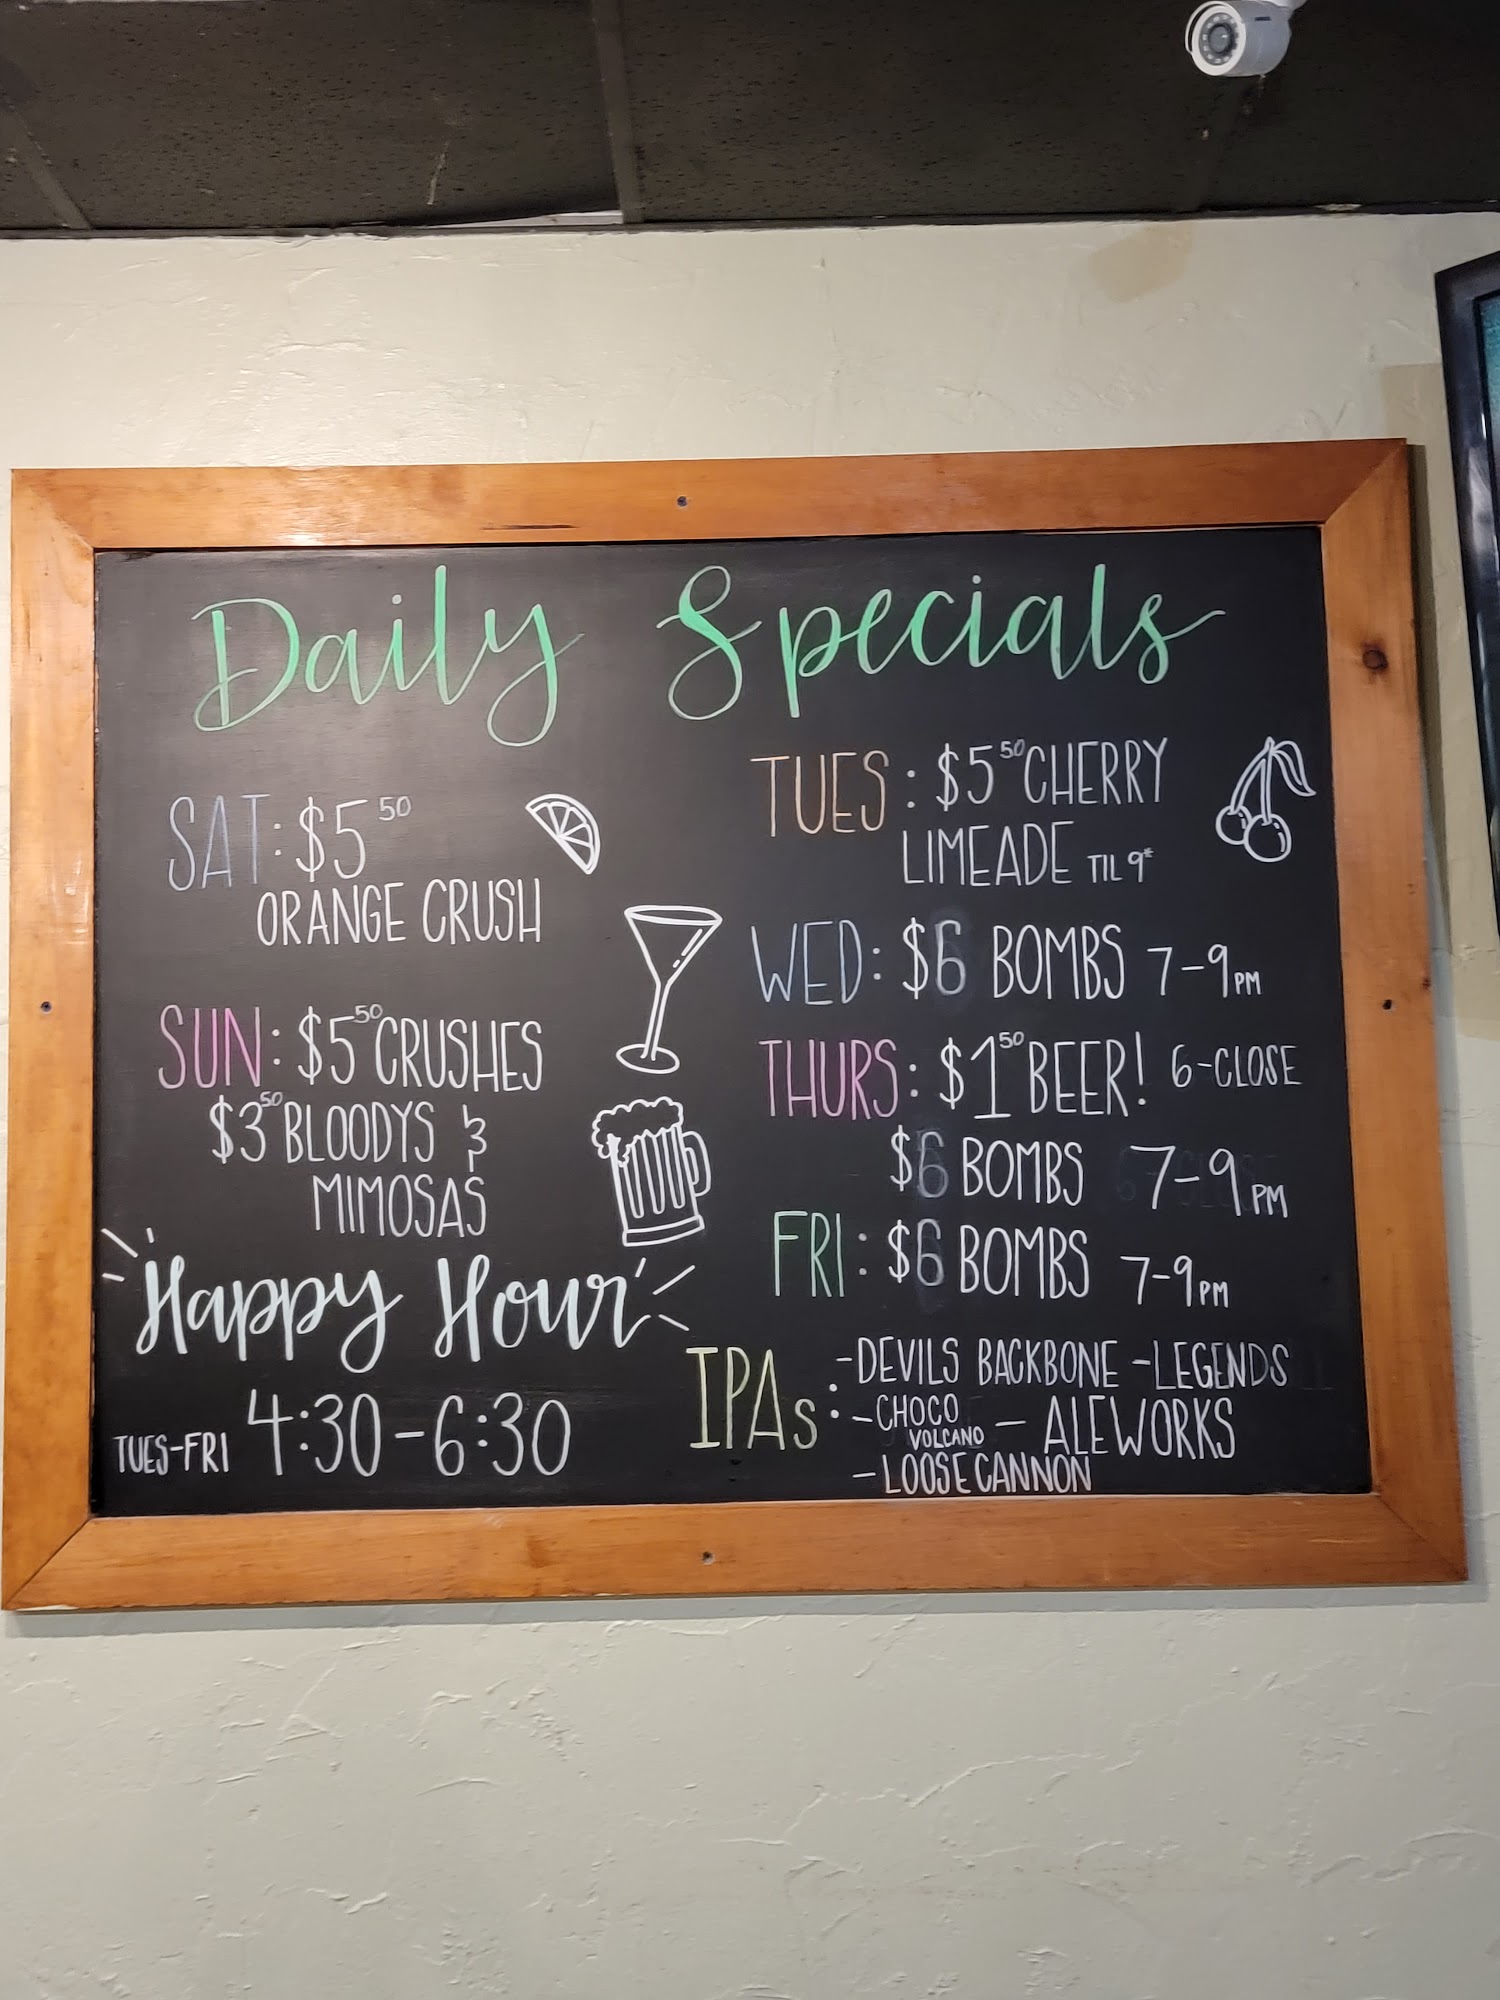 Daily Specials
SAT: $5 50
ORANGE CRUSH
SUN: $5 50 CRUSHES
$3 50 BLOODYS &
MIMOSAS
Happy Hour
TUES-FRI 4:30-6:30
TUES: $5 50 CHERRY
LIMEADE TIL 9*
WED: $6 BOMBS 7-9PM
THURS: $1 50 BEER! 6-CLOSE
$6 BOMBS 7-9PM
FRI: $6 BOMBS 7-9PM
IPAs: -DEVILS BACKBONE -LEGENDS
-CHOCO VOLCANO - ALEWORKS
-LOOSE CANNON